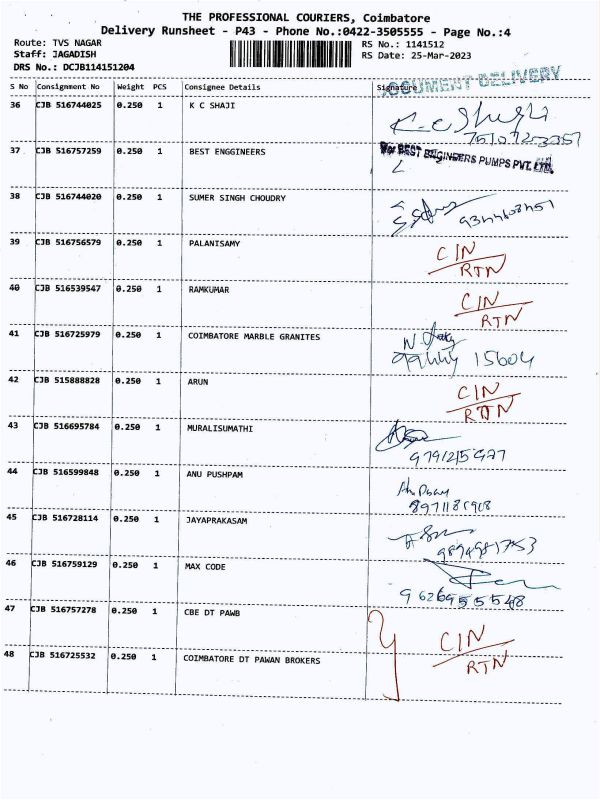 THE PROFESSIONAL COURIERS, Coimbatore
Delivery Runsheet - P43 - Phone No.:0422-3505555 - Page No.:4
Route: TVS NAGAR
Staff: JAGADISH
DRS No.: DCJB114151204
RS No.: 1141512
RS Date: 25-Mar-2023
DOCUMENT DELIVERY
S No Consignment No Weight PCS Consignee Details Signature
36 CJB 516744025 0.250 1 K C SHAJI K-C Shaji
7510723357
37 CJB 516757259 0.250 1 BEST ENGGINEERS For BEST ENGINEERS PUMPS PVT. LTD.
38 CJB 516744020 0.250 1 SUMER SINGH CHOUDRY
39 CJB 516756579 0.250 1 PALANISAMY CIN
RTN
40 CJB 516539547 0.250 1 RAMKUMAR CIN
RTN
41 CJB 516725979 0.250 1 COIMBATORE MARBLE GRANITES
15604
42 CJB 515888828 0.250 1 ARUN CIN
RTN
43 CJB 516695784 0.250 1 MURALISUMATHI
44 CJB 516599848 0.250 1 ANU PUSHPAM
45 CJB 516728114 0.250 1 JAYAPRAKASAM
46 CJB 516759129 0.250 1 MAX CODE
9626955548
47 CJB 516757278 0.250 1 CBE DT PAWB
CIN
RTN
48 CJB 516725532 0.250 1 COIMBATORE DT PAWAN BROKERS